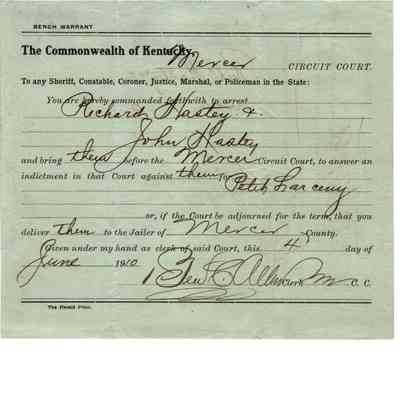 BENCH WARRANT
The Commonwealth of Kentucky,
Mercer CIRCUIT COURT.
To any Sheriff, Constable, Coroner, Justice, Marshal, or Policeman in the State:
You are hereby commanded forthwith to arrest
Richard Hastey &
John Hastey
and bring them before the Mercer Circuit Court, to answer an
indictment in that Court against them for Petit Larceny
or, if the Court be adjourned for the term, that you
deliver them to the Jailer of Mercer County.
Given under my hand as clerk of said Court, this 4 day of
June 1910
Ben C Allin Clerk M C. C.
The Herald Print.